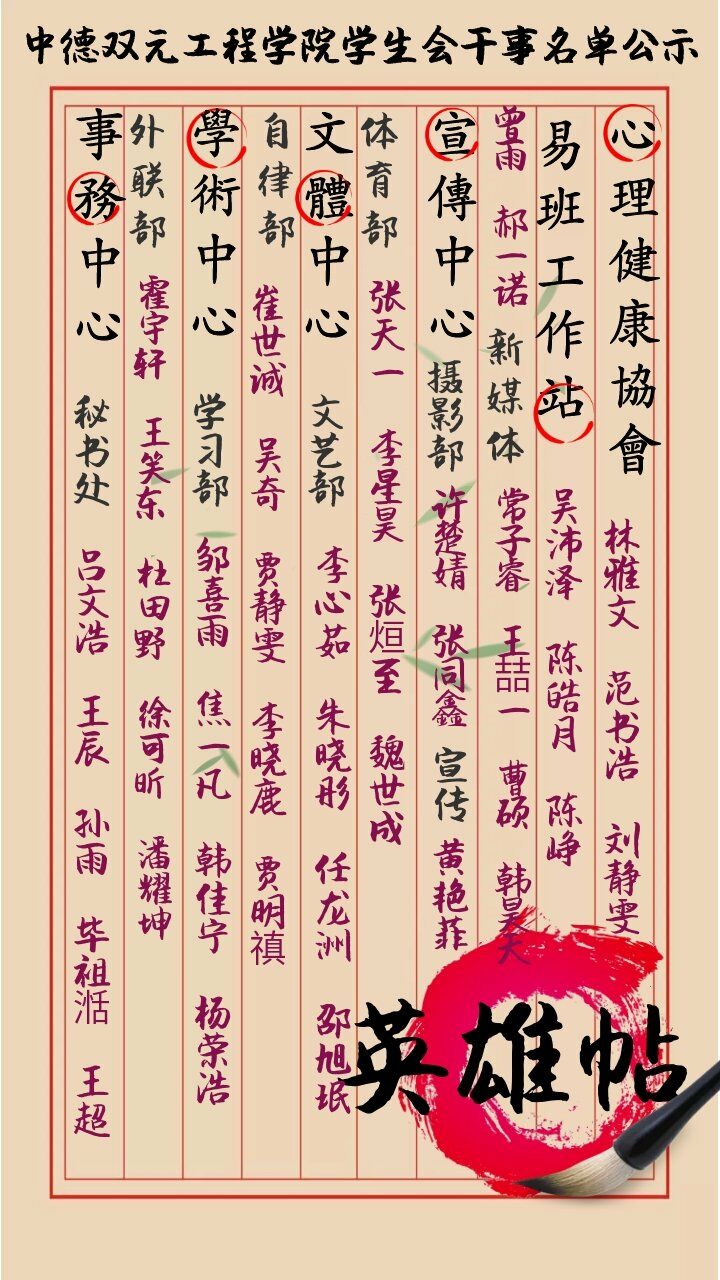 中德双元工程学院学生会干事名单公示
心理健康協會 林雅文 范书浩 刘静雯
易班工作站 吴沛泽 陈皓月 陈峥
曾雨 郝一诺 新媒体 常子睿 王喆一 曹硕 韩昊天
宣傳中心 摄影部 许楚婧 张同鑫 宣传 黄艳菲
体育部 张天一 李星昊 张烜至 魏世成
文體中心 文艺部 李心茹 朱晓彤 任龙洲 邵旭珉
自律部 崔世诚 吴奇 贾静雯 李晓鹿 贾明禛
學術中心 学习部 邹喜雨 焦一凡 韩佳宁 杨荣浩
外联部 霍宇轩 王笑东 杜田野 徐可昕 潘耀坤
事務中心 秘书处 吕文浩 王辰 孙雨 毕祖湉 王超
英雄帖